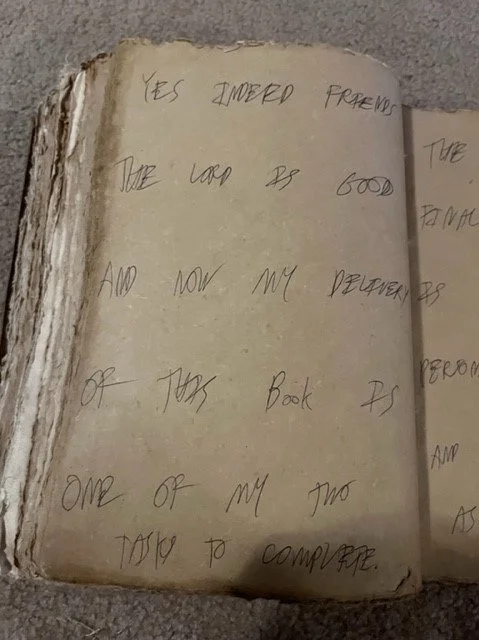 YES INDEED FRIENDS
THE LORD IS GOOD
AND NOW MY DELIVERY
OF THIS Book IS
ONE OF MY TWO
TASKS TO COMPLETE.
THE
FINAL
IS
PERSON
AND
AS